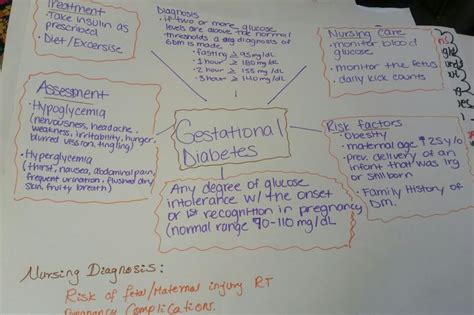 Treatment
-Take insulin as
prescribed
- Diet/Excersise
Diagnosis
- if two or more glucose
levels are above the normal
thresholds a diagnosis of
GDM is made.
• fasting ≥ 95 mg/dL
• 1 hour ≥ 180 mg/dL
• 2 hour ≥ 155 mg/dL
• 3 hour ≥ 140 mg/dL
Nursing care
- monitor blood
glucose
- monitor the fetus
- daily kick counts
Assessment
- Hypoglycemia
(nervousness, headache,
weakness, irritability, hunger,
blurred vission, tingling)
- Hyperglycemia
(thirst, nausea, abdominal pain,
frequent urination, flushed dry
skin, fruity breath)
Gestational
Diabetes
Risk factors
- Obesity
- maternal age ↑ 25 y/o
- prev. delivery of an
infant that was lrg
or stillborn
- Family History of
DM.
Any degree of glucose
intolerance w/ the onset
or 1st recognition in pregnancy
(normal range 70-110 mg/dL)
Nursing Diagnosis:
Risk of fetal/Maternal injury RT
Pregnancy Complications.